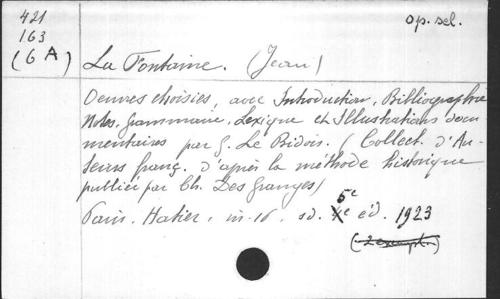 421
163
(6 A)
op. sel.
La Fontaine. (Jean)
Oeuvres choisies, avec Introduction, Bibliographie
Notes, Grammaire, Lexique et Illustrations docu
mentaires par G. Le Bidois. (Collect. d'Au-
teurs franç. d'après la méthode historique
publiée par Ch. Des Granges)
Paris. Hatier, in-16. sd. 5e éd. 1923
(2 exempl.)